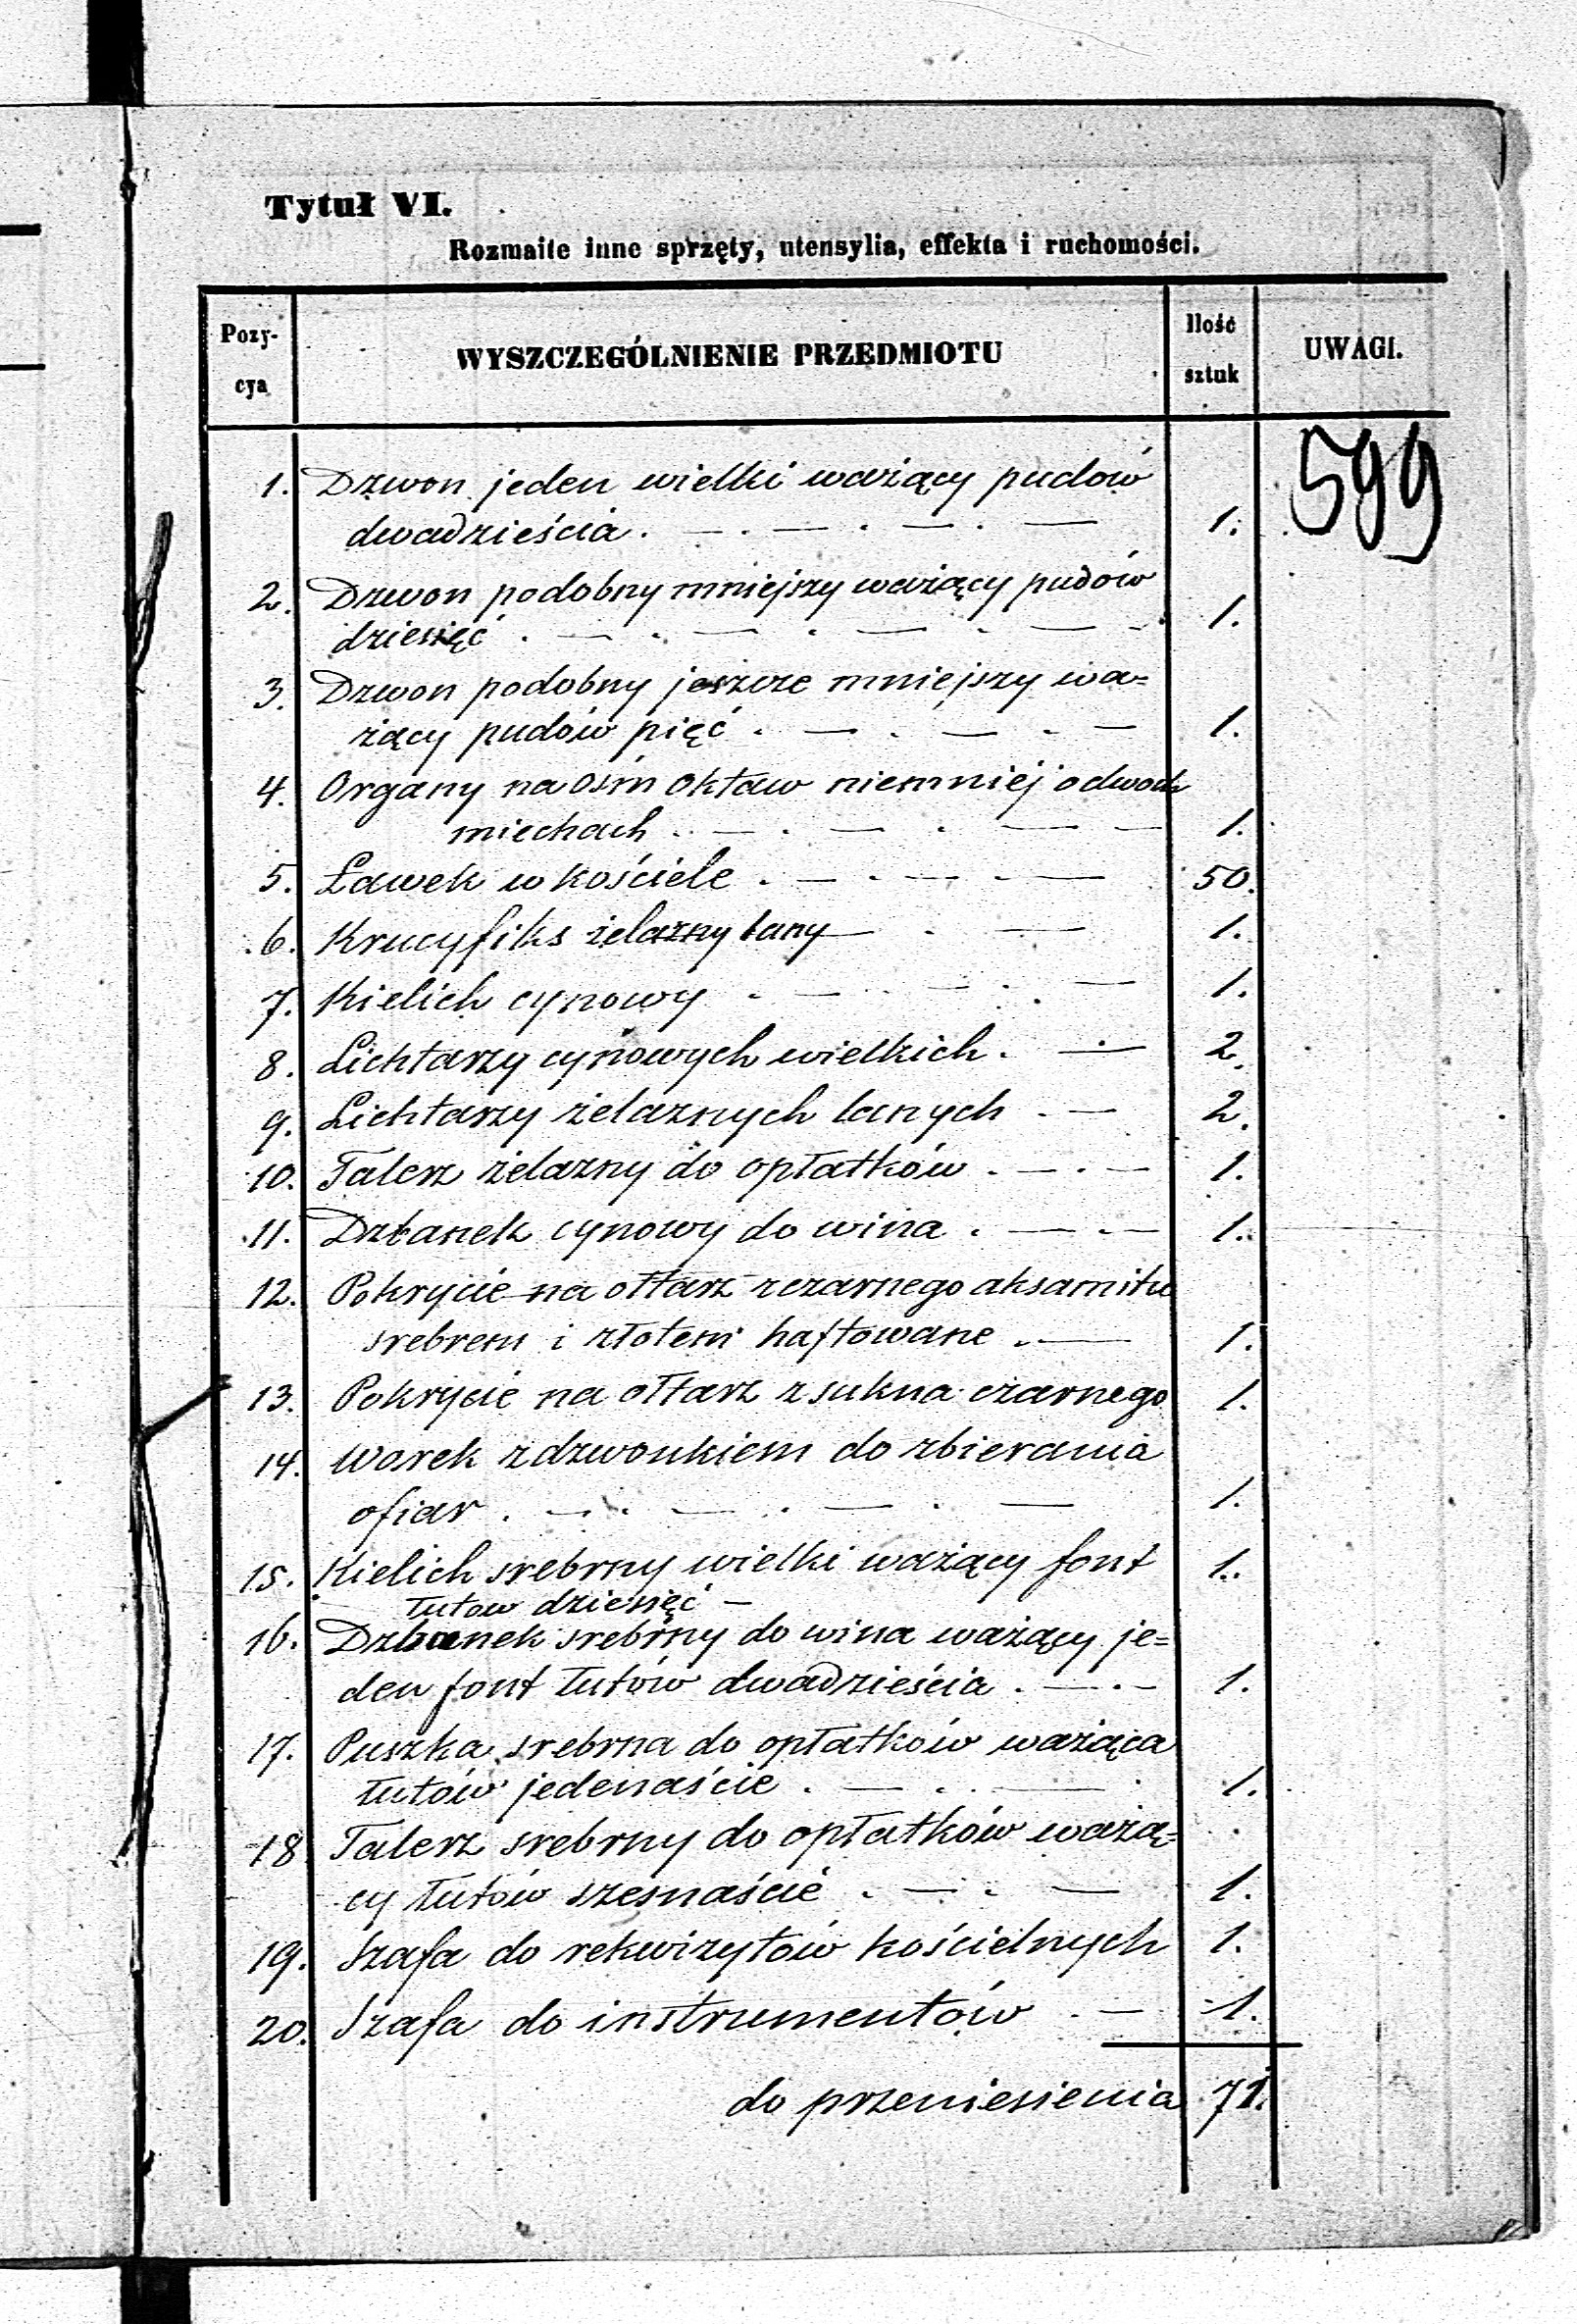 Tytuł VI.
Rozmaite inne sprzęty, utensylia, effekta i ruchomości.
Pozy-
cya
WYSZCZEGÓLNIENIE PRZEDMIOTU
Ilość
sztuk
UWAGI.
599
1. Dzwon jeden wielki ważący pudów
dwadzieścia . — . — . — . — 1.
2. Dzwon podobny mniejszy ważący pudów
dziesięć . — . — . — . — 1.
3. Dzwon podobny jeszcze mniejszy wa=
żący pudów pięć . — . — . — 1.
4. Organy na ośm oktaw niemniej o dwoch
miechach . — . — . — — 1.
5. Ławek w kościele . — . — . — 50.
6. Krucyfiks żelazny lany — . — 1.
7. Kielich cynowy . — . — . — 1.
8. Lichtarzy cynowych wielkich . — 2.
9. Lichtarzy żelaznych lanych . — 2.
10. Talerz żelazny do opłatków . — . — 1.
11. Dzbanek cynowy do wina . — . — 1.
12. Pokrycie na ołtarz z czarnego aksamitu
srebrem i złotem haftowane . — 1.
13. Pokrycie na ołtarz z sukna czarnego 1.
14. Worek z dzwonkiem do zbierania
ofiar . — . — . — . — 1.
15. Kielich srebrny wielki ważący font 1.
łutow dziesięć —
16. Dzbanek srebrny do wina ważący je=
den font łutów dwadzieścia . — . — 1.
17. Puszka srebrna do opłatków ważąca
łutów jedenaście . — . — . 1.
18 Talerz srebrny do opłatków ważą=
cy łutów szesnaście . — . — 1.
19. Szafa do rekwizytów kościelnych 1.
20. Szafa do instrumentów . — 1.
do przeniesienia 71.